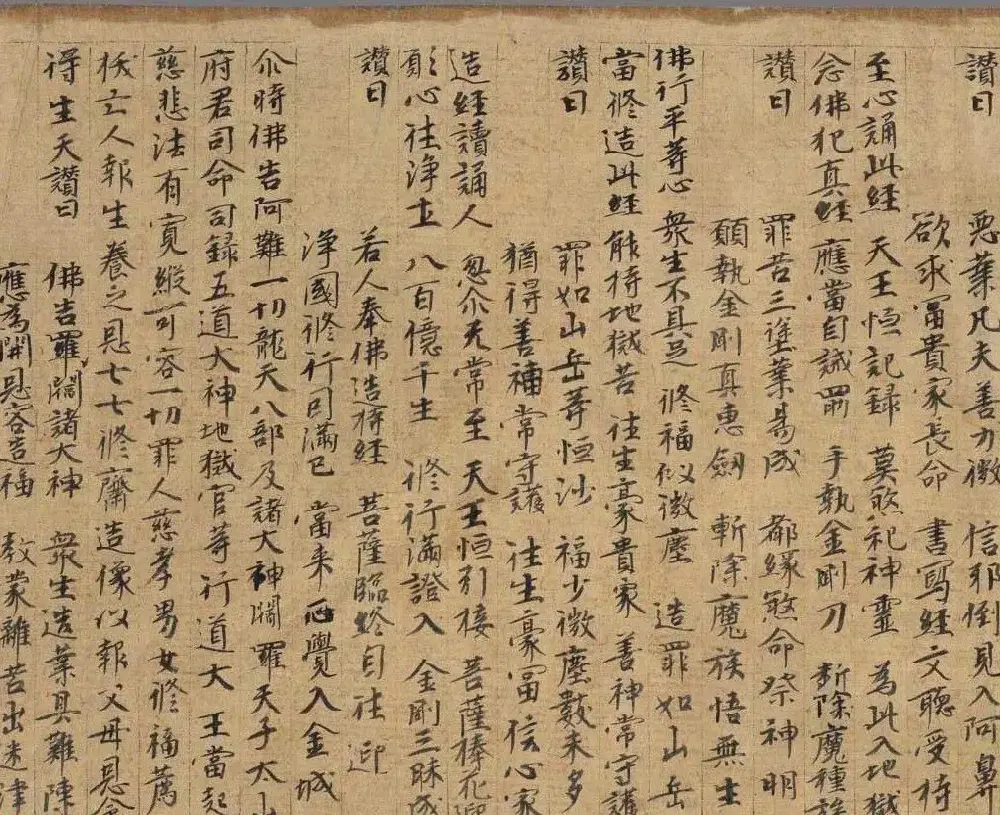 讃曰 惡業凡夫善力微 信耶倒見入阿鼻
欲求富貴家長命 書寫經文聽受持
至心誦此經 天王恒記録 莫煞祀神靈 為此入地獄
念佛犯真經 應當自誡勗 手執金剛刀 斬除魔種族
讃曰 罪苦三塗業易成 都緣煞命祭神明
願執金剛真惠劔 斬除魔族悟無生
佛行平等心 衆生不具足 修福似微塵 造罪如山岳
當修造此經 能持地獄苦 往生豪貴家 善神常守護
讃曰 罪如山岳等恒沙 福少微塵數未多
猶得善神常守護 往生豪富信心家
造經讀誦人 忽尒无常至 天王恒引接 菩薩捧花迎
願心往淨土 八百億千生 修行滿證入 金剛三昧成
讃曰 若人奉佛造持經 菩薩臨終自往迎
淨國修行因滿已 當来正覺入金城
尒時佛告阿難一切龍天八部及諸大神閻羅天子太山
府君司命司録五道大神地獄官等行道大 王當起
慈悲法有寛縱可容一切罪人慈孝男女修福薦
拔亡人報生養之恩七七修齋造像以報父母恩令
得生天讃曰 佛告羅閻諸大神 衆生造業具難陳
應為開恩容造福 教蒙離苦出迷津